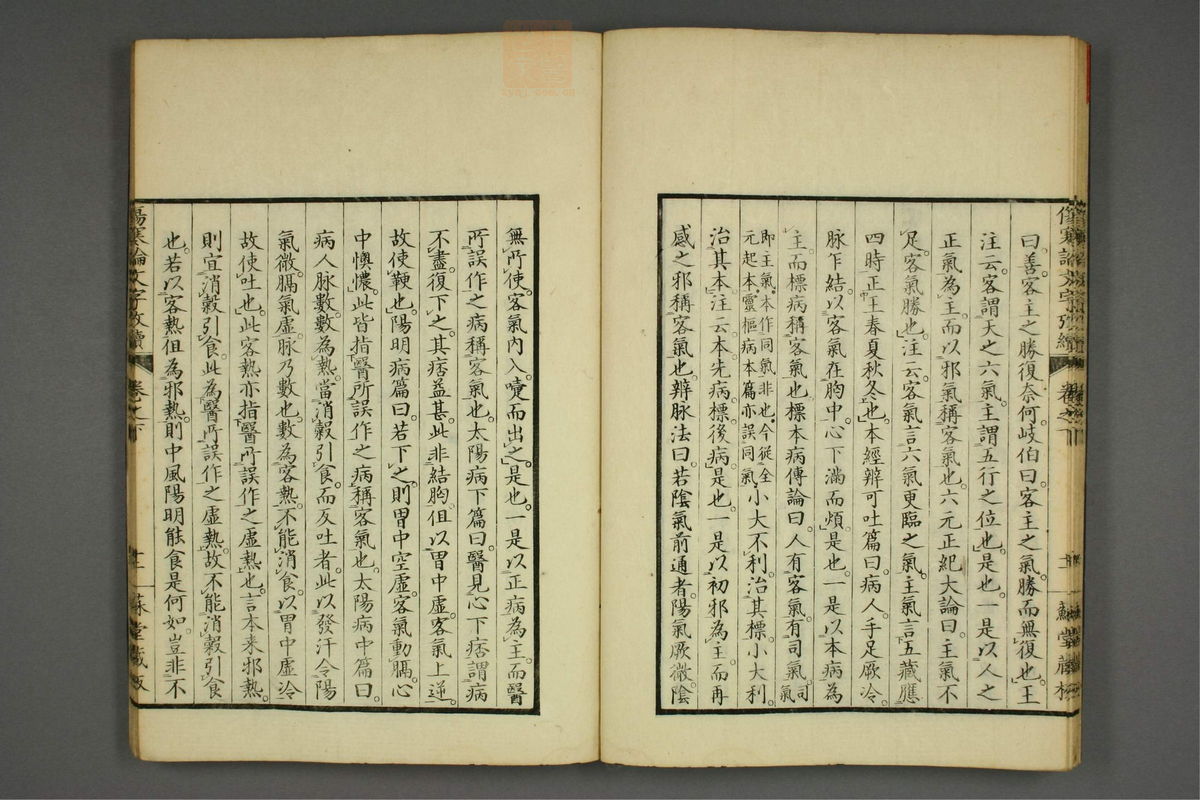 曰善客主之勝復奈何岐伯曰客主之氣勝而無復也王
注云客謂天之六氣主謂五行之位也是也一是以人之
正氣為主而以邪氣稱客氣也六元正紀大論曰主氣不
足客氣勝也注云客氣言六氣更臨之氣主氣言五藏應
四時正王春夏秋冬也本經辨可吐篇曰病人手足厥冷
脉乍結以客氣在胸中心下滿而煩是也一是以本病為
主而標病稱客氣也標本病傳論曰人有客氣有司氣司氣
即主氣本作同氣非也今從全
元起本靈樞病本篇亦誤同氣小大不利治其標小大利
治其本注云本先病標後病是也一是以初邪為主而再
感之邪稱客氣也辨脉法曰若陰氣前通者陽氣厥微陰
無所使客氣內入嚏而出之是也一是以正病為主而醫
所誤作之病稱客氣也太陽病下篇曰醫見心下痞謂病
不盡復下之其痞益甚此非結胸但以胃中虛客氣上逆
故使鞕也陽明病篇曰若下之則胃中空虛客氣動膈心
中懊憹此皆指醫所誤作之病稱客氣也太陽病中篇曰
病人脉數數為熱當消穀引食而反吐者此以發汗令陽
氣微膈氣虛脉乃數也數為客熱不能消食以胃中虛冷
故使吐也此客熱亦指醫所誤作之虛熱也言本來邪熱
則宜消穀引食此為醫所誤作之虛熱故不能消穀引食
也若以客熱但為邪熱則中風陽明能食是何如豈非不
傷寒論文字攷續 卷之下 十一 蘇堂藏板